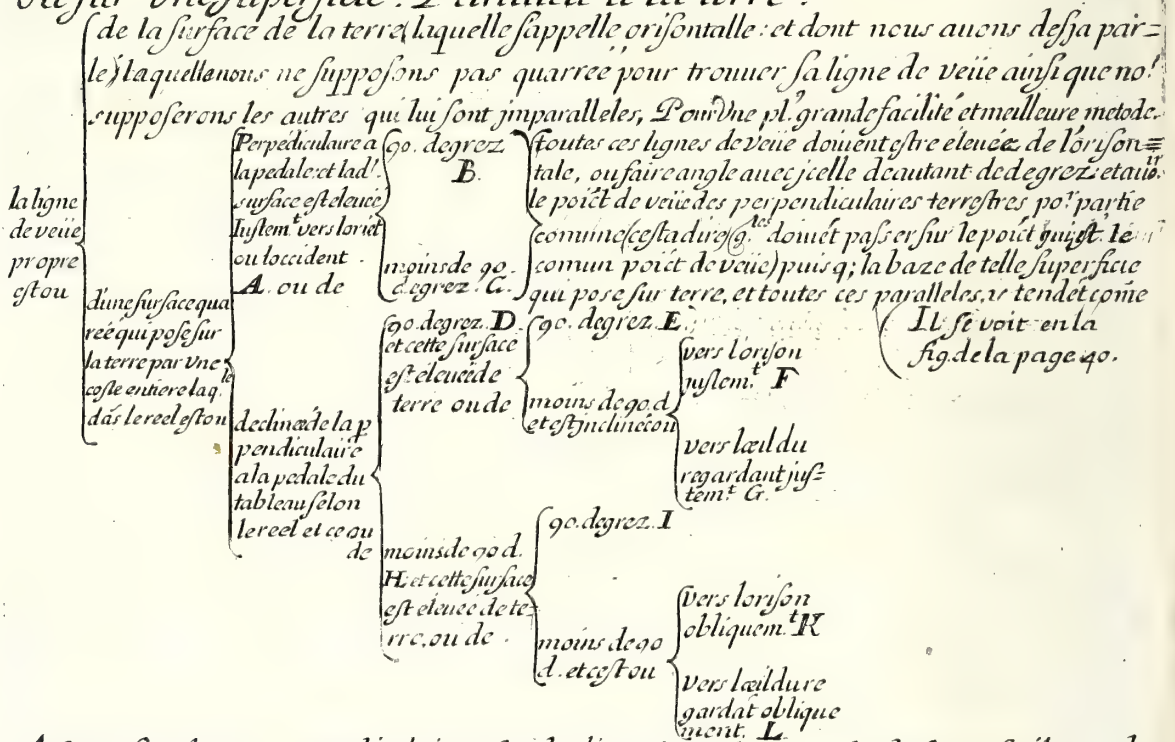 de la surface de la terre (laquelle s'appelle orisontalle: et dont nous auons desja par=
lé) laquelle nous ne supposons pas quarrée pour trouuer sa ligne de veüe ainsi que no.s
supposerons les autres qui lui sont jmparalleles, Pour Vne pl. grande facilité et meilleure metode.
la ligne
de veüe
propre
est ou
d'une surface qua
reé qui pose sur
la terre par vne
coste entiere laq.le
dãs le reel est ou
Perpẽdiculaire a
la pedale: et lad.
surface est eleueé
Iustem.t vers loriẽt
ou loccident
A. ou de
90. degrez
B.
moins de 90.
degrez. C.
toutes ces lignes de veüe doiuent estre eleueés de lorison=
tale, ou faire angle auec jcelle de autant de degrez: et auoir
le poĩct de veüe des perpendiculaires terrestres po.r partie
comune (cest a dire q. les doiuẽt passer sur le poĩct qui est le
comun poĩct de veüe) puis q; la baze de telle superficie
qui pose sur terre, et toutes ces paralleles, y tendẽt comẽ
Il se voit en la
fig. de la page 40.
declineé de la p
pendiculaire
a la pedale du
tableau selon
le reel et ce ou
de
90. degrez. D
et cette surface
est eleueé de
terre ou de
90. degrez. E.
moins de 90. d
et est jnclineé ou
vers lorison
justem.t F
vers lœil du
regardant jus=
tem.t G.
moins de 90 d.
H. et cette surface
est eleueé de te=
rre, ou de .
90. degrez. I
moins de 90
d. et cest ou
vers lorison
obliquem.t K
vers lœil du re
gardãt oblique
ment. L